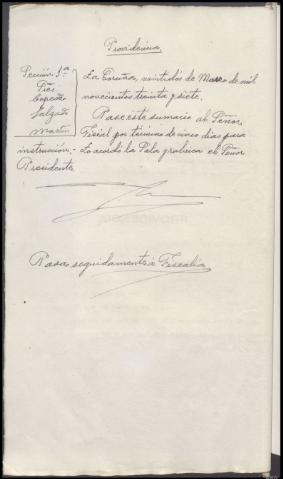 Providencia
Sección 1ª
Sres
Salgado
Martín
La Coruña, veintidós de Marzo de mil
novecientos treinta y siete.
Pase este sumario al Señor
Fiscal por término de cinco días para
instrucción.- Lo acordó la Sala y rubrica el Señor
Presidente
Pasa seguidamente a Fiscalía